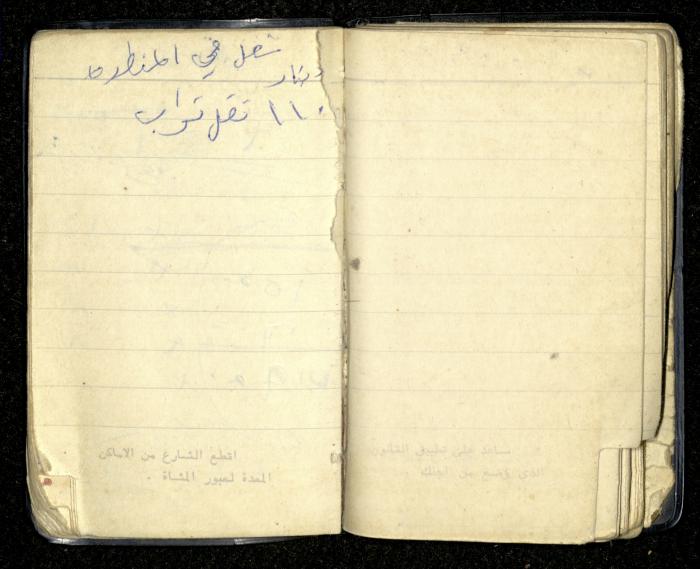 شغل في المنظرة
دينار
١١٠ نقل تراب
اقطع الشارع من الاماكن
المعدة لعبور المشاة .
ساعد على تطبيق القانون
الذي وضع من اجلك